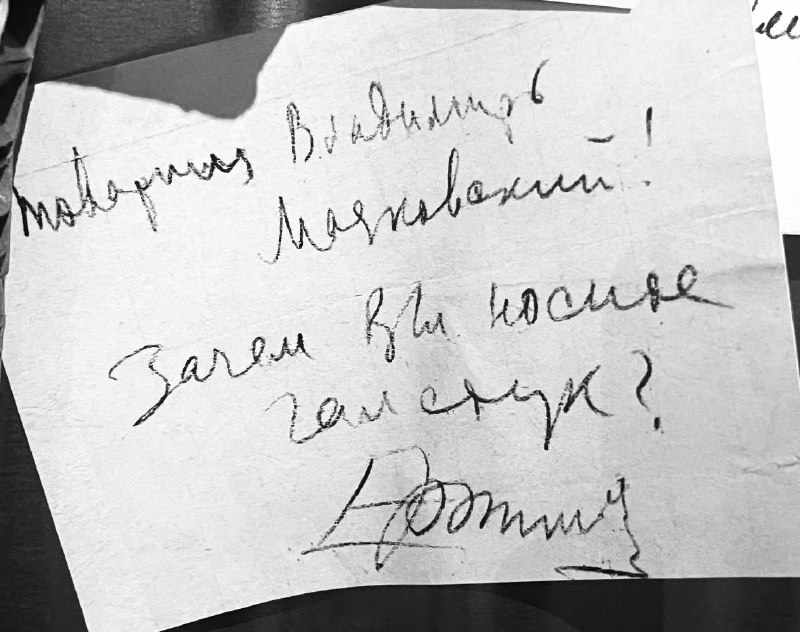 товарищ Владимир
Маяковский!
Зачем Вы носите
галстук?